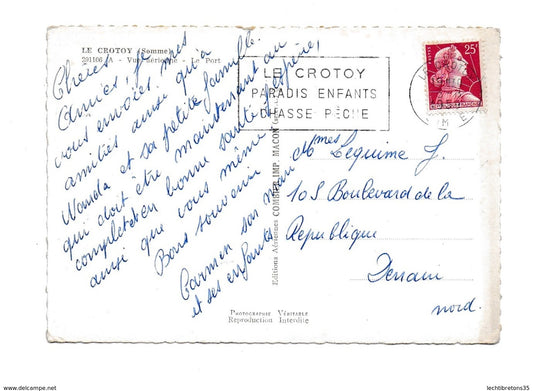 LE CROTOY (Somme)
291106 A - Vue aérienne - Le Port
Chères
Amies, Je
vous envoies mes
amitiés ainsi qu'a
Wanda et sa petite famille.
qui doit être maintenant au
complet et en bonne santé j'espère,
ainsi que vous même
Bons souvenir
Carmen son mari
et ses enfants
LE CROTOY
PARADIS ENFANTS
CHASSE PÊCHE
25F
Editions Aériennes COMBIER IMP. MACON
Mmes Lequime J.
105 Boulevard de la
République
Denain
nord.
PHOTOGRAPHIE VÉRITABLE
Reproduction Interdite
www.delcampe.net
lechtibretons35